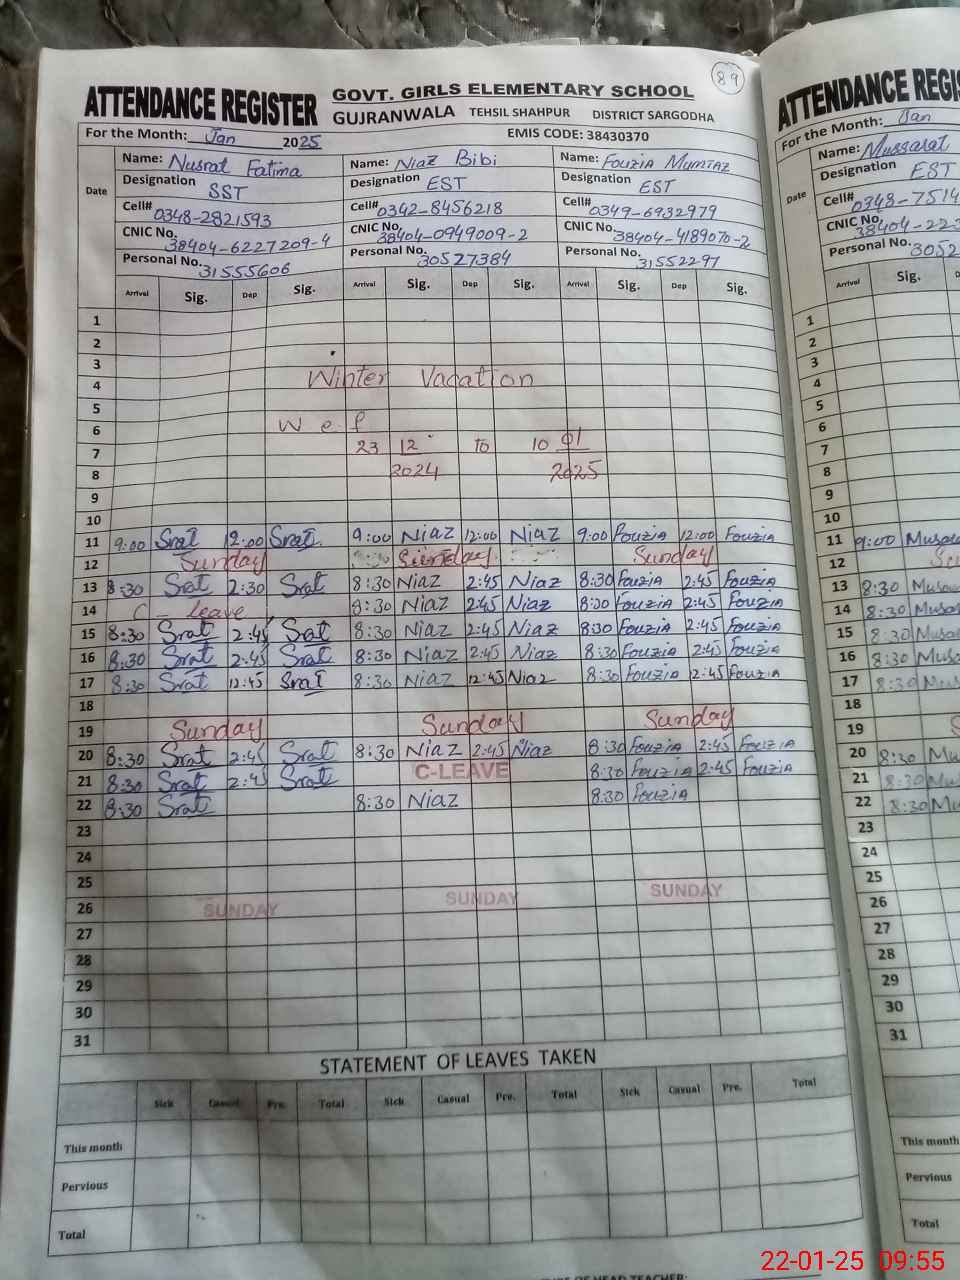 89
ATTENDANCE REGISTER GOVT. GIRLS ELEMENTARY SCHOOL
GUJRANWALA TEHSIL SHAHPUR DISTRICT SARGODHA
For the Month: Jan 2025 EMIS CODE: 38430370
Date
Name: Nusrat Fatima Name: Niaz Bibi Name: Fouzia Mumtaz
Designation SST Designation EST Designation EST
Cell# 0348-2821593 Cell# 0342-8456218 Cell# 0349-6932979
CNIC No. 38404-6227209-4 CNIC No. 38404-0949009-2 CNIC No. 38404-4189070-2
Personal No. 31555606 Personal No. 30527384 Personal No. 31552297
Arrival Sig. Dep Sig. Arrival Sig. Dep Sig. Arrival Sig. Dep Sig.
1
2
3
4 Winter Vacation
5
6 w e f
7 23 12 to 10 01
8 2024 2025
9
10
11 9:00 Srat 12:00 Srat 9:00 Niaz 12:00 Niaz 9:00 Fouzia 12:00 Fouzia
12 Sunday Sunday Sunday
13 8:30 Srat 2:30 Srat 8:30 Niaz 2:45 Niaz 8:30 Fouzia 2:45 Fouzia
14 C - leave 8:30 Niaz 2:45 Niaz 8:30 Fouzia 2:45 Fouzia
15 8:30 Srat 2:45 Srat 8:30 Niaz 2:45 Niaz 8:30 Fouzia 2:45 Fouzia
16 8:30 Srat 2:45 Srat 8:30 Niaz 2:45 Niaz 8:30 Fouzia 2:45 Fouzia
17 8:30 Srat 12:45 Srat 8:30 Niaz 12:45 Niaz 8:30 Fouzia 12:45 Fouzia
18
19 Sunday Sunday Sunday
20 8:30 Srat 2:45 Srat 8:30 Niaz 2:45 Niaz 8:30 Fouzia 2:45 Fouzia
21 8:30 Srat 2:45 Srat C-LEAVE 8:30 Fouzia 2:45 Fouzia
22 8:30 Srat 8:30 Niaz 8:30 Fouzia
23
24
25
26 SUNDAY SUNDAY SUNDAY
27
28
29
30
31
STATEMENT OF LEAVES TAKEN
Sick Casual Pre. Total Sick Casual Pre. Total Sick Casual Pre. Total
This month
Pervious
Total
ATTENDANCE REGIS
For the Month: Jan
Date
Name: Mussarat
Designation EST
Cell# 0348-7514
CNIC No. 38404-223
Personal No. 3052
Arrival Sig.
1
2
3
4
5
6
7
8
9
10
11 9:00
12
13 8:30
14 8:30
15 8:30
16 8:30
17 8:30
18
19
20 8:30
21 8:30
22 8:30
23
24
25
26
27
28
29
30
31
This month
Pervious
Total
22-01-25 09:55